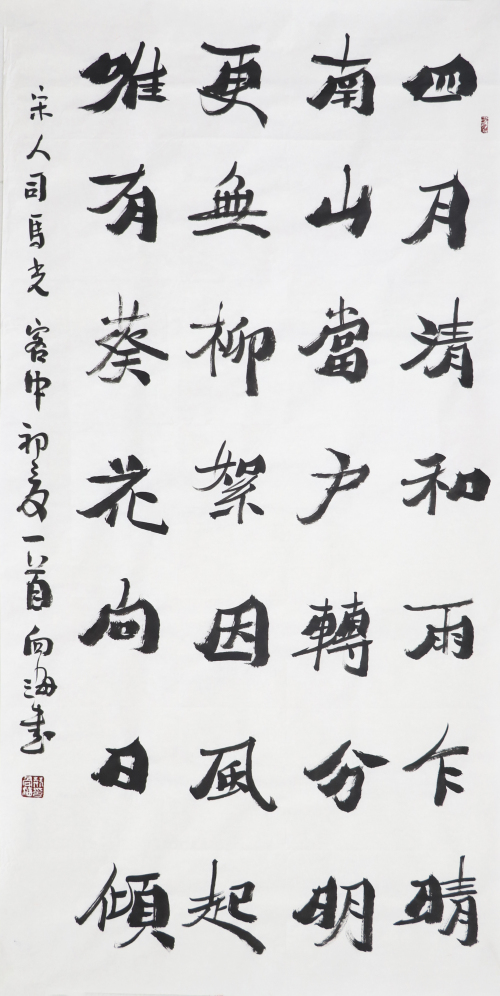 四月清和雨乍晴
南山當户轉分明
更無柳絮因風起
唯有葵花向日傾
宋人司馬光客中初夏一首向海書